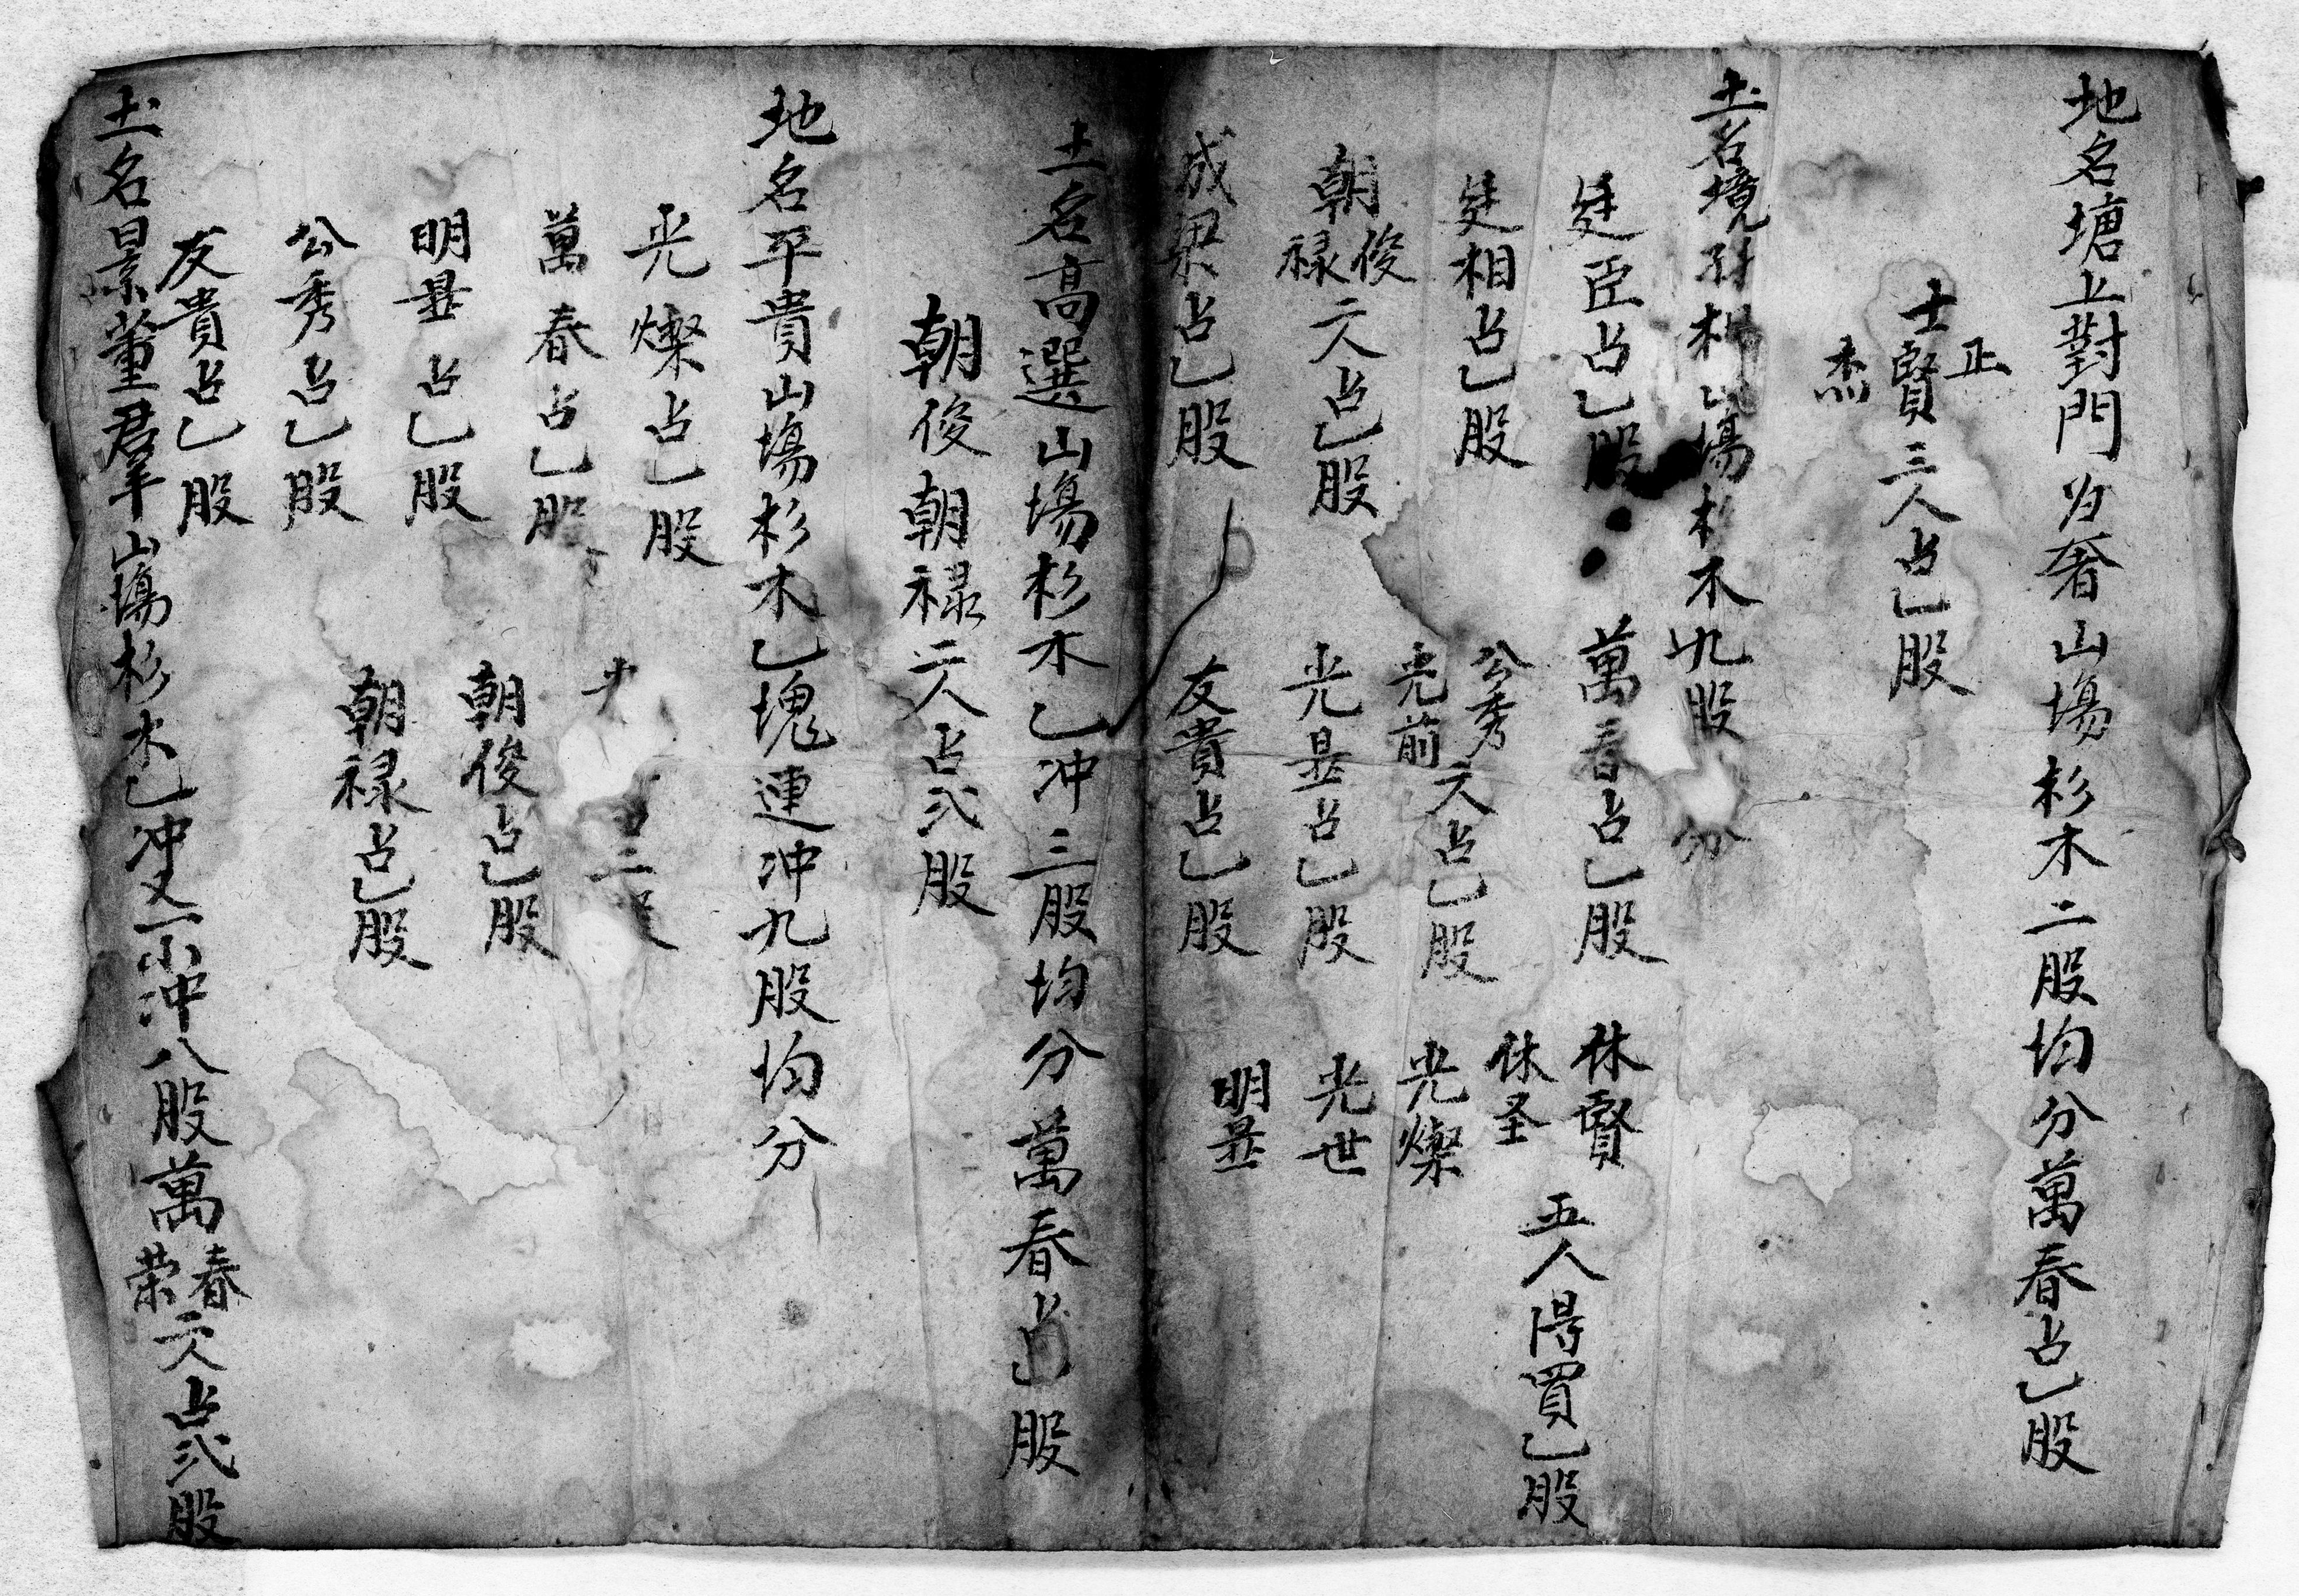 地名塘上對門為奢山場杉木二股均分萬春占乙股
士正賢杰三人占乙股
土名境孖榜山場杉木九股分
廷臣占乙股
萬春占乙股
休賢
廷相占乙股
公秀光前二人占乙股
休圣
五人得買乙股
朝俊禄二人占乙股
光显占乙股
光燦
光世
成梁占乙股
友貴占乙股
明显
土名高選山場杉木乙冲三股均分萬春占乙股
朝俊朝禄二人占弍股
地名平貴山場杉木乙塊連冲九股均分
光燦占乙股
光
萬春占乙股
朝俊占乙股
明显占乙股
朝禄占乙股
公秀占乙股
友貴占乙股
土名景董羣山塲杉木乙冲又一小冲八股萬春荣二人占弍股